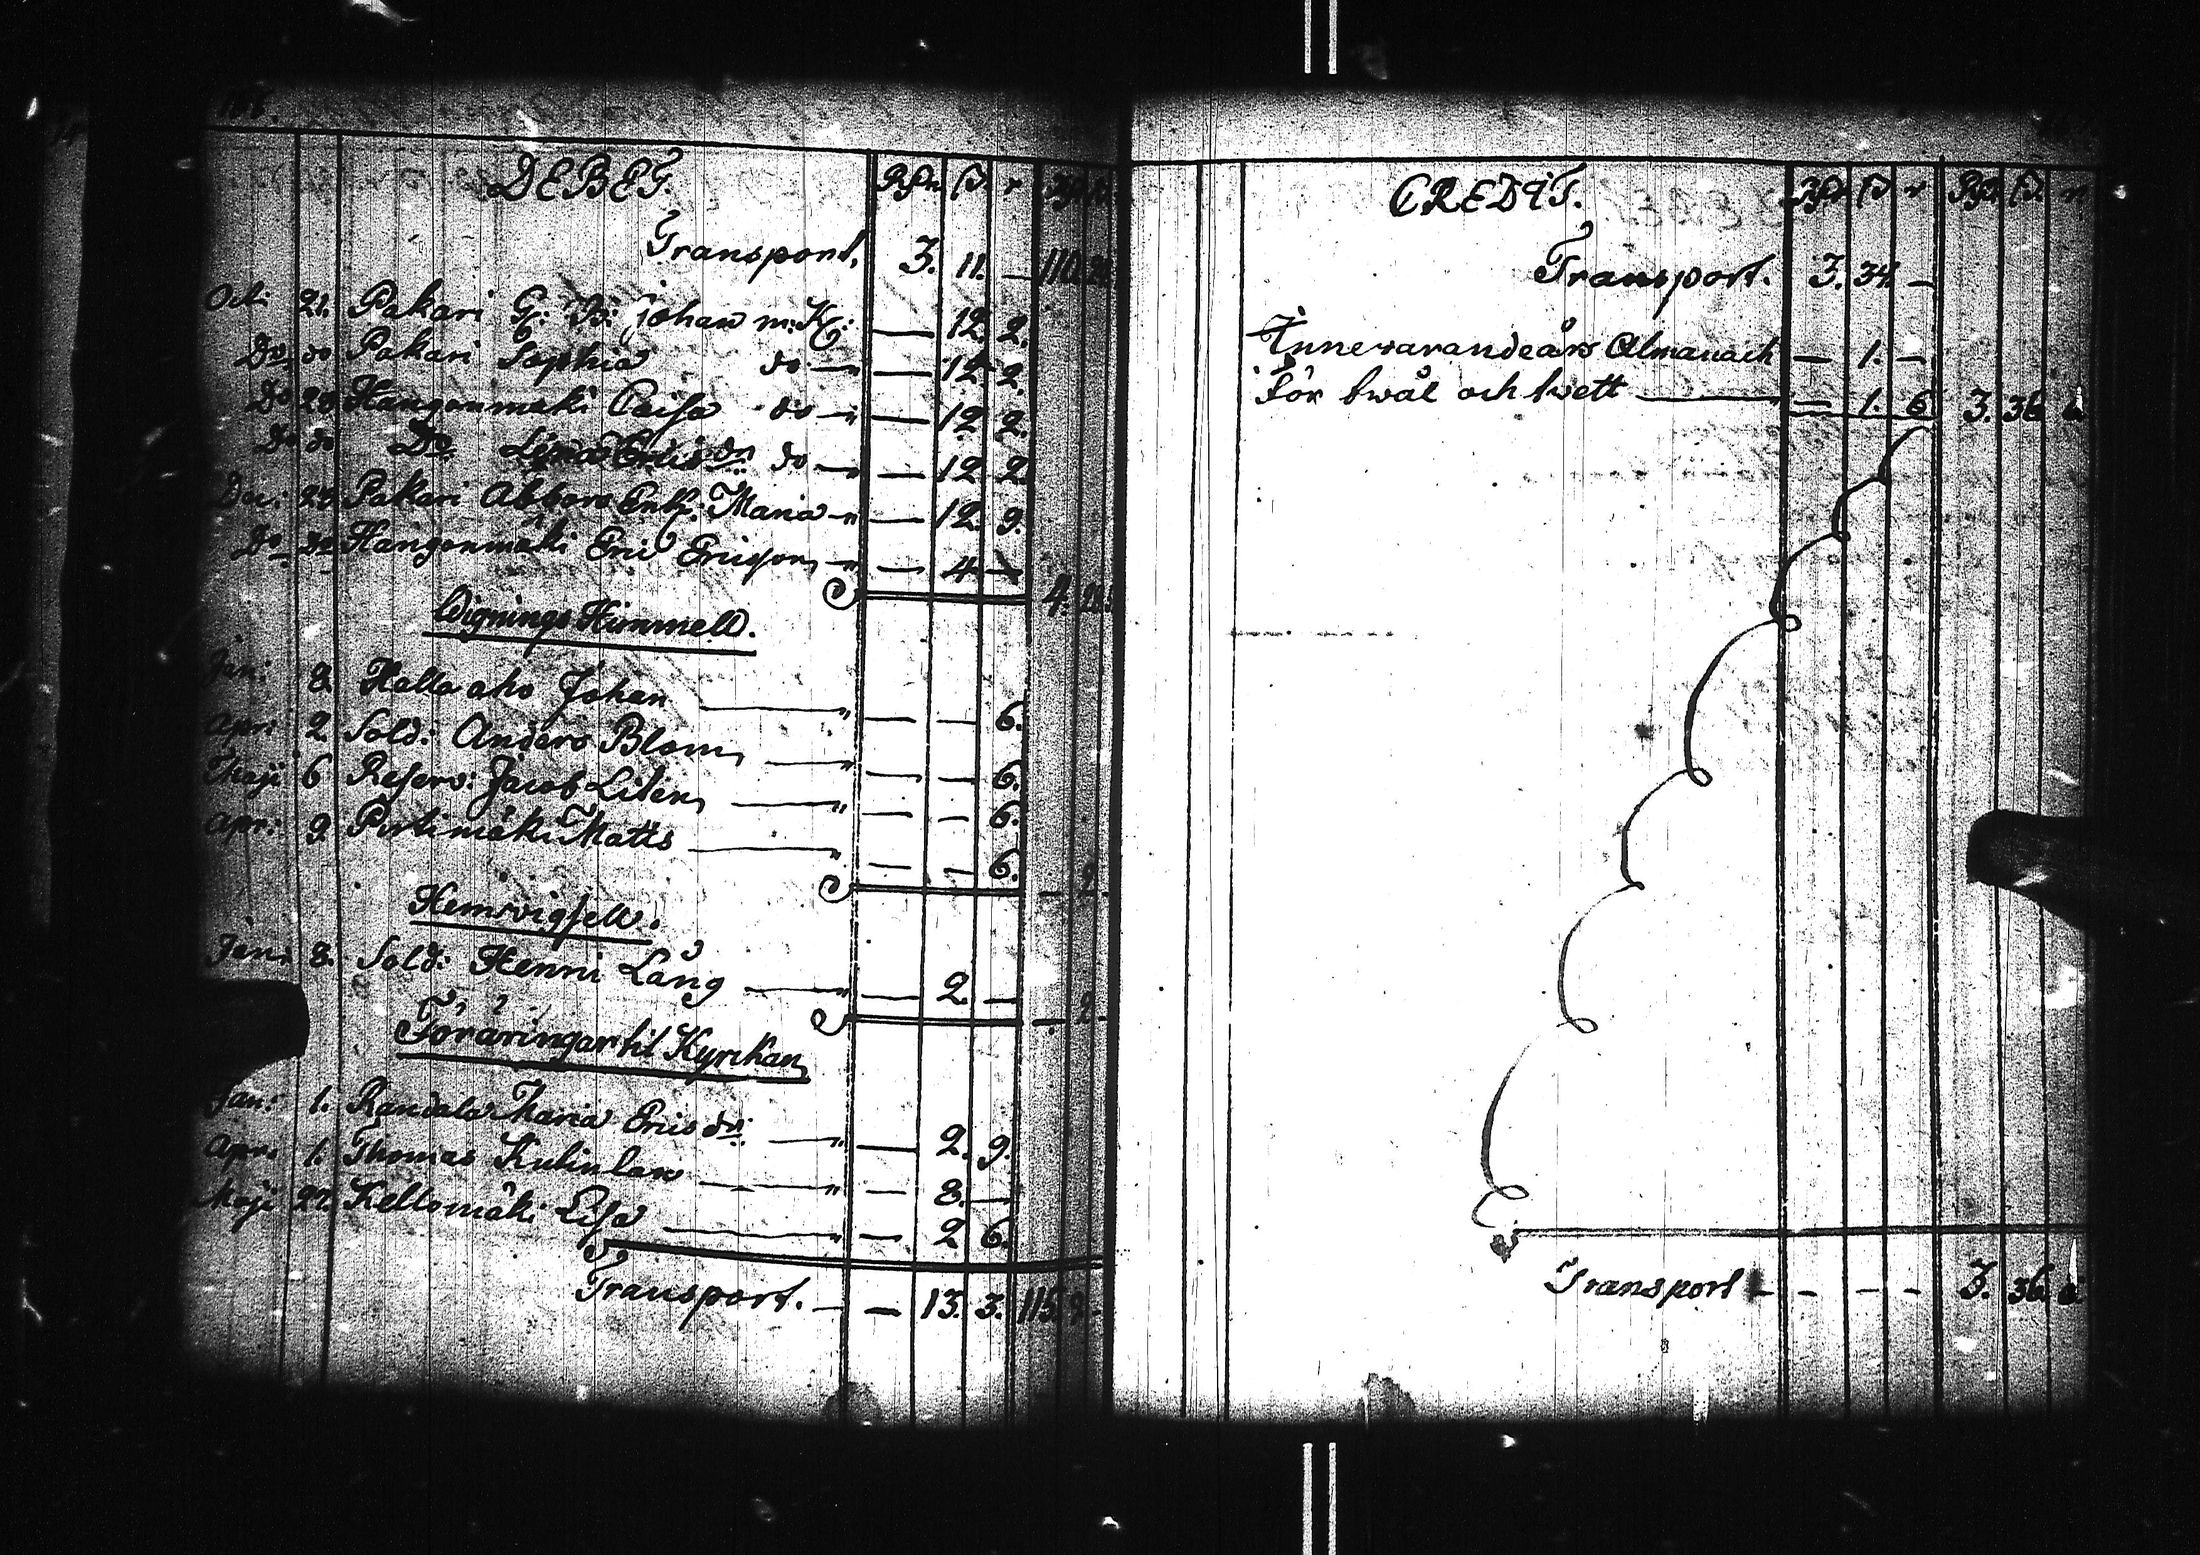 DEBET. Rsd. sl. r
Transport. 3. 11. — 110.
Oct: 21. Pakari G: B: Johan m: K: — 12. 2.
Do do Pakari Sophia do — 12. 2.
Do 28 Kangonmäki Caisa do — 12. 2.
Do do Do Lisa Ericsdr: do — 12. 2
Dec: 28 Pakari Abbors Enk: Maria — 12. 9.
Do Kangonmäki Eric Ericson — 4. — 4.
Wignings Himmell.
Jan: 8. Halla aho Johan — — 6.
Apr: 2. Sold: Anders Blom — — 6.
Maji 6 Reserv: Jacob Liten — — 6.
Apr: 9 Pirtimäki Matts — — 6. — 2.
Hemvigsell.
Jan: 8. Sold: Henric Lång — 2. — — 2 -
Föräringar til Kyrckan
Jan: 1. Randala Maria Ericsdr: — 2. 9.
Apr: 1. Thomas — 8. —
Maji 27. Kellomäki Lisa — 2 6.
Transport. — — 13. 3. 115. 9. -
CREDIT. Rsd. sl. r Rsd. sl. r
Transport. 3. 34. —
Innevarandeårs Almanach — 1. —
För twål och twett — 1. 6 3. 36 6
Transport — — — — 3. 36 6